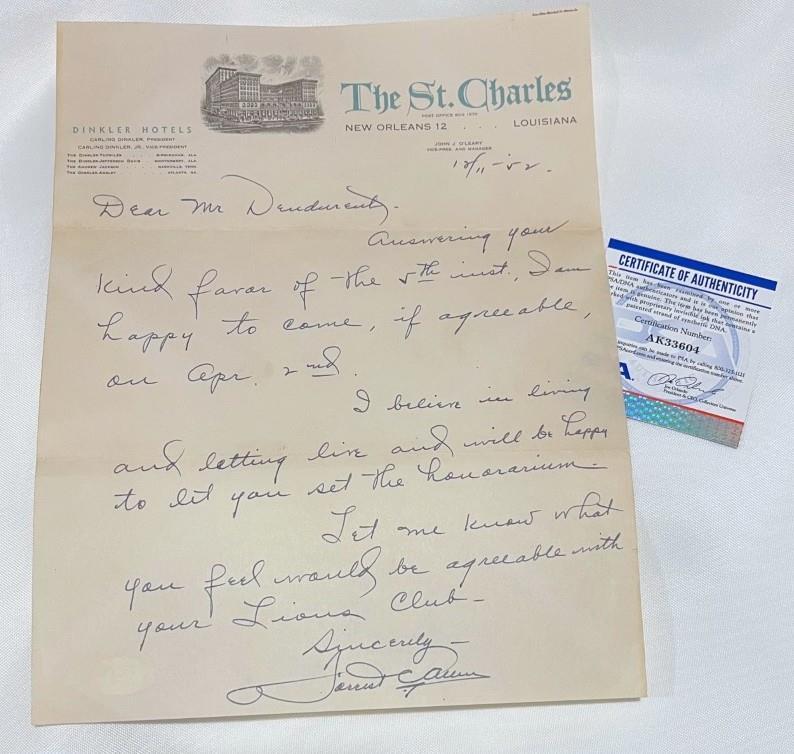 The St. Charles
POST OFFICE BOX
NEW ORLEANS 12 . . . LOUISIANA
JOHN J. O'LEARY
VICE-PRES. AND MANAGER
DINKLER HOTELS
CARLING DINKLER, PRESIDENT
CARLING DINKLER, JR., VICE-PRESIDENT
THE DINKLER-TUTWILER BIRMINGHAM, ALA.
THE DINKLER-JEFFERSON DAVIS MONTGOMERY, ALA.
THE ANDREW JACKSON NASHVILLE, TENN.
THE DINKLER-ANSLEY ATLANTA, GA.
12/11-'52.
Dear Mr
Answering your
kind favor of the 5th inst., I am
happy to come, if agreeable,
on Apr. 2nd.
I believe in living
and letting live and will be happy
to let you set the honorarium-
Let me know what
you feel would be agreeable with
your Lions Club-
Sincerely-
CERTIFICATE OF AUTHENTICITY
This item has been examined by one or more
PSA/DNA authenticators and it is our opinion that
item is genuine. The item has been permanently
marked with proprietary invisible ink that contains a
patented strand of synthetic DNA.
Certification Number:
AK33604
Inquiries can be made to PSA by calling
and entering the certification number above.
Joe Orlando
President & CEO, Collectors Universe